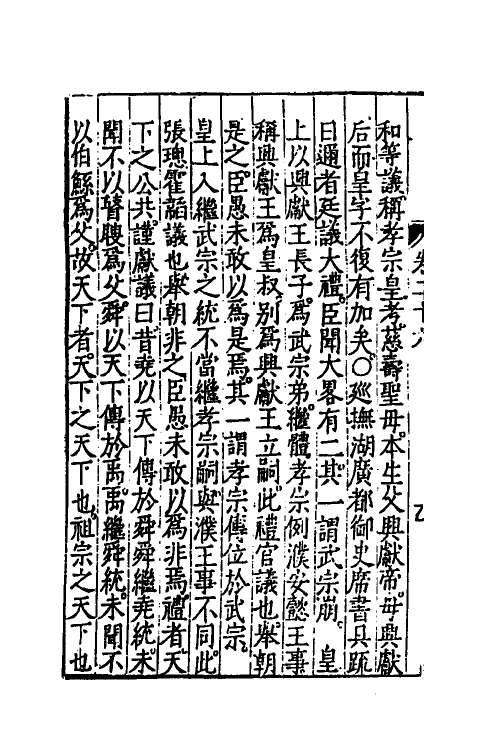 和等議稱孝宗皇考慈壽聖母本生父興獻帝母興獻
后而皇字不復有加矣○廵撫湖廣都御史席書具䟽
曰邇者廷議大禮臣聞大畧有二其一謂武宗崩　皇
上以興獻王長子爲武宗弟繼體孝宗例濮安懿王事
稱興獻王爲皇叔别爲興獻王立嗣此禮官議也舉朝
是之臣愚未敢以爲是焉其一謂孝宗傳位於武宗
皇上入繼武宗之統不當繼孝宗嗣與濮王事不同此
張璁霍韜議也舉朝非之臣愚未敢以爲非焉禮者天
下之公共謹獻議曰昔堯以天下傳於舜舜繼堯統未
聞不以瞽瞍爲父舜以天下傳於禹禹繼舜統未聞不
以伯鯀爲父故天下者天下之天下也祖宗之天下也